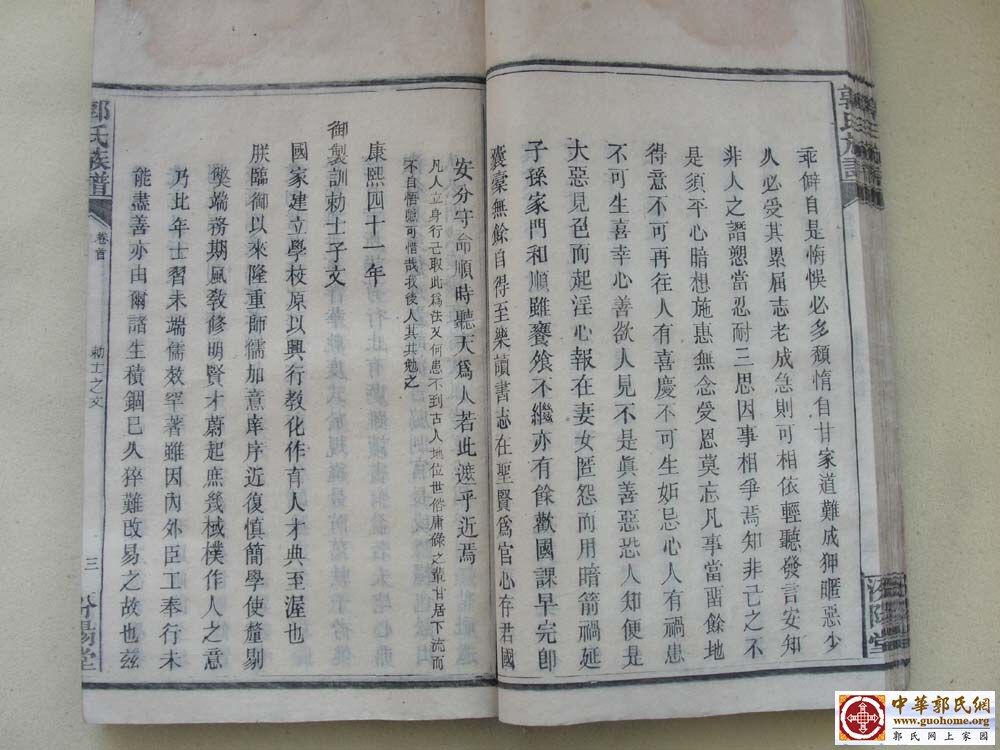 乖僻自是悔悞必多頹惰自甘家道難成狎暱惡少
久必受其累屈志老成急則可相依輕聽發言安知
非人之譖愬當忍耐三思因事相爭焉知非己之不
是須平心暗想施惠無念受恩莫忘凡事當畱餘地
得意不可再往人有喜慶不可生妬忌心人有禍患
不可生喜幸心善欲人見不是眞善惡恐人知便是
大惡見色而起淫心報在妻女匿怨而用暗箭禍延
子孫家門和順雖饔飧不繼亦有餘歡國課早完卽
囊橐無餘自得至樂讀書志在聖賢爲官心存君國
安分守命順時聽天爲人若此遮乎近焉
凡人立身行己取此爲法又何患不到古人地位世俗庸碌之輩甘居下流而
不自悟憶可惜哉我後人其共勉之
康熙四十一年
御製訓勅士子文
國家建立學校原以興行教化作育人才典至渥也
朕臨御以來隆重師儒加意庠序近復慎簡學使釐剔
獘端務期風敎修明賢才蔚起庶幾棫樸作人之意
乃比年士習未端儒效罕著雖因內外臣工奉行未
能盡善亦由爾諸生積錮已久猝難改易之故也茲
郭氏族譜
卷首
勅士之文
三
汾陽堂
中華郭氏網
www.guohome.org
郭氏网上家园